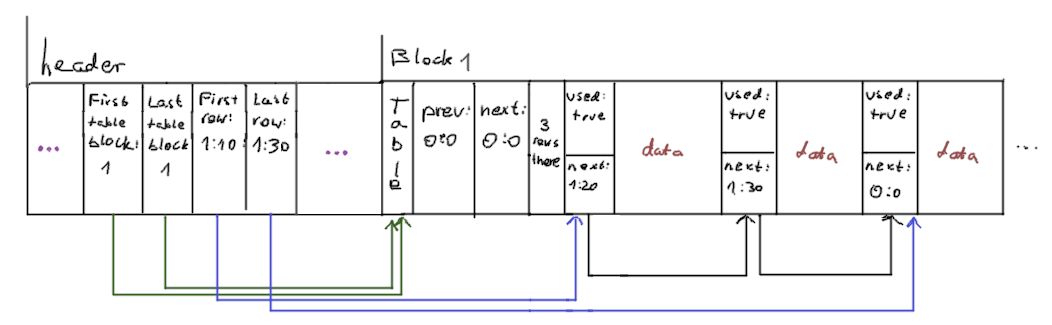 header
Block 1
...
First
table
block:
1
Last
table
block
1
First
row:
1:10
Last
row:
1:30
...
Table
prev:
0:0
next:
0:0
3
rows
there
used:
true
next:
1:20
data
used:
true
next:
1:30
data
used:
true
next:
0:0
data
...